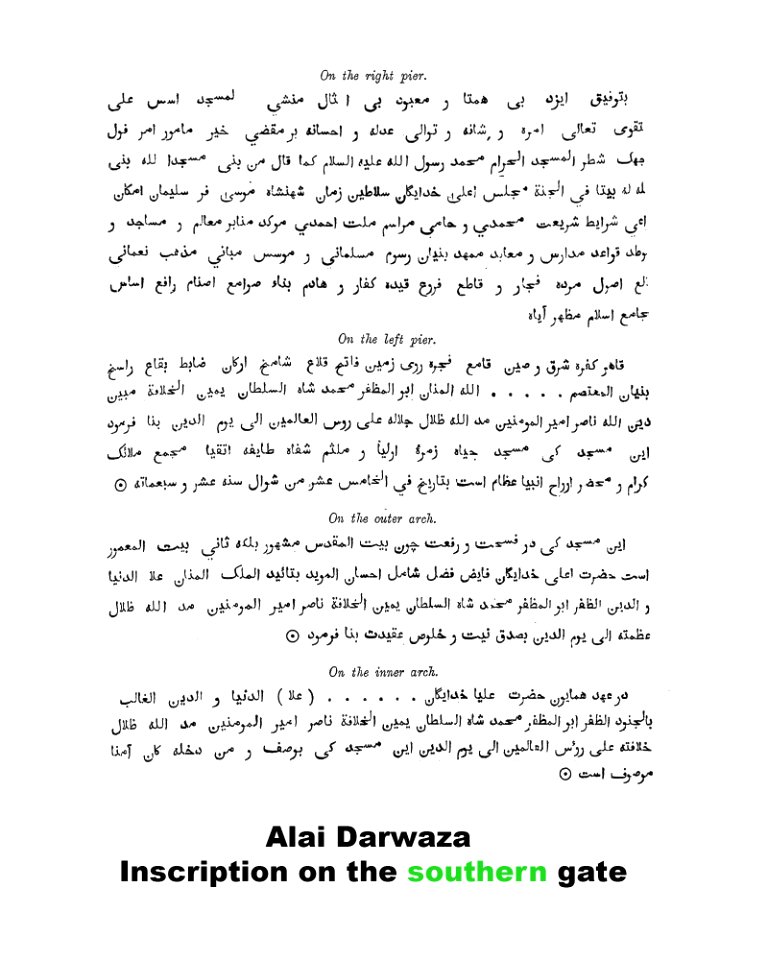 On the right pier.
بتوفیق ایزد بی همتا و معبود بی ا ثال منشي لمسجد اسس علی
تقوی تعالی امره و شانه و توالی عدله و احسانه بر مقضي خیر مامور امر فول
جهك شطر المسجد الحرام محمد رسول الله علیه السلام کما قال من بنی مسجدا لله بنی
لله له بیتا في الجنة مجلس اعلی خدایگان سلاطین زمان شهنشاه موسی فر سلیمان امکان
اعي شرایط شریعت محمدي و حامي مراسم ملت احمدي موکد منابر معالم و مساجد و
وطد قواعد مدارس و معابد ممهد بنیان رسوم مسلمانی و موسس مباني مذهب نعمانی
لع اصول مرده فجار و قاطع فروع قیده کفار و هادم بناء صوامع اصنام رافع اساس
جامع اسلام مظهر آیاه
On the left pier.
قاهر کفره شرق و صین قامع فجره روی زمین فاتح قلاع شامخ ارکان ضابط بقاع راسخ
بنیان المعتصم . . . . . الله المنان ابو المظفر محمد شاه السلطان یمین الخلافة مبین
دین الله ناصر امیر المومنین مد الله ظلال جلاله علی روس العالمین الی یوم الدین بنا فرمود
این مسجد کی مسجد جیاه زمرۀ اولیا و ملثم شفاه طایفه اتقیا مجمع ملائك
کرام و محضر ارواح انبیا عظام است بتاریخ في الخامس عشر من شوال سنه عشر و سبعمائه ⊙
On the outer arch.
این مسجد کی در فسحت و رفعت چون بیت المقدس مشهور بلکه ثاني بیت المعمور
است حضرت اعلی خدایگان فایض فضل شامل احسان الموید بتائید الملك المنان علا الدنیا
و الدین الظفر ابو المظفر محمد شاه السلطان یمین الخلافة ناصر امیر المومنین مد الله ظلال
عظمته الی یوم الدین بصدق نیت و خلوص عقیدت بنا فرمود ⊙
On the inner arch.
در عهد همایون حضرت علیا خدایگان . . . . . . ( علا ) الدنیا و الدین الغالب
بالجنود الظفر ابو المظفر محمد شاه السلطان یمین الخلافة ناصر امیر المومنین مد الله ظلال
خلافته علی روئس العالمین الی یوم الدین این مسجد کی بوصف و من دخله کان آمنا
موصوف است ⊙
Alai Darwaza
Inscription on the southern gate